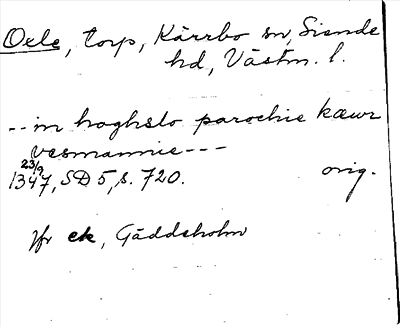 Oele, torp, Kärrbo sn, Siende
hd, Västm. l.
-- in hoghslo parochie kæwr
vesmannie ---
23/9
1347, SD 5, s. 720. orig.
Jfr ek, Gäddeholm